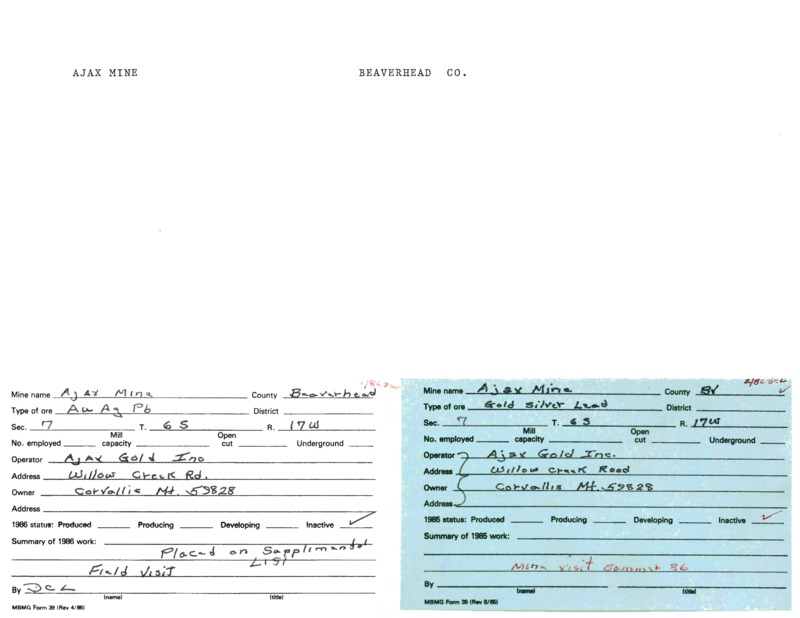 AJAX MINE BEAVERHEAD CO.
Mine name Ajax Mine County Beaverhead
Type of ore Au Ag Pb District
Sec. 7 T. 6S R. 17W
No. employed Mill capacity Open cut Underground
Operator Ajax Gold Inc
Address Willow Creek Rd.
Owner Corvallis Mt. 59828
Address
1986 status: Produced Producing Developing Inactive ✓
Summary of 1986 work:
Placed on Supplimental
List
Field Visit
By DCL
(name) (title)
MBMG Form 39 (Rev 4/86)
Mine name Ajax Mine County BV
Type of ore Gold Silver Lead District
Sec. 7 T. 6S R. 17W
No. employed Mill capacity Open cut Underground
Operator Ajax Gold Inc.
Address Willow Creek Road
Owner Corvallis Mt. 59828
Address
1985 status: Produced Producing Developing Inactive ✓
Summary of 1985 work:
Mine visit Summer 86
By
(name) (title)
MBMG Form 39 (Rev 8/85)